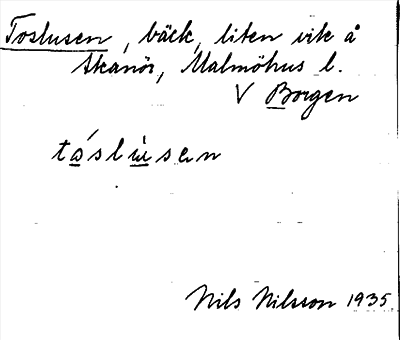 Toslusen, bäck, liten vik å
Skanör, Malmöhus l.
V Borgen
tóslùsen
Nils Nilsson 1935.